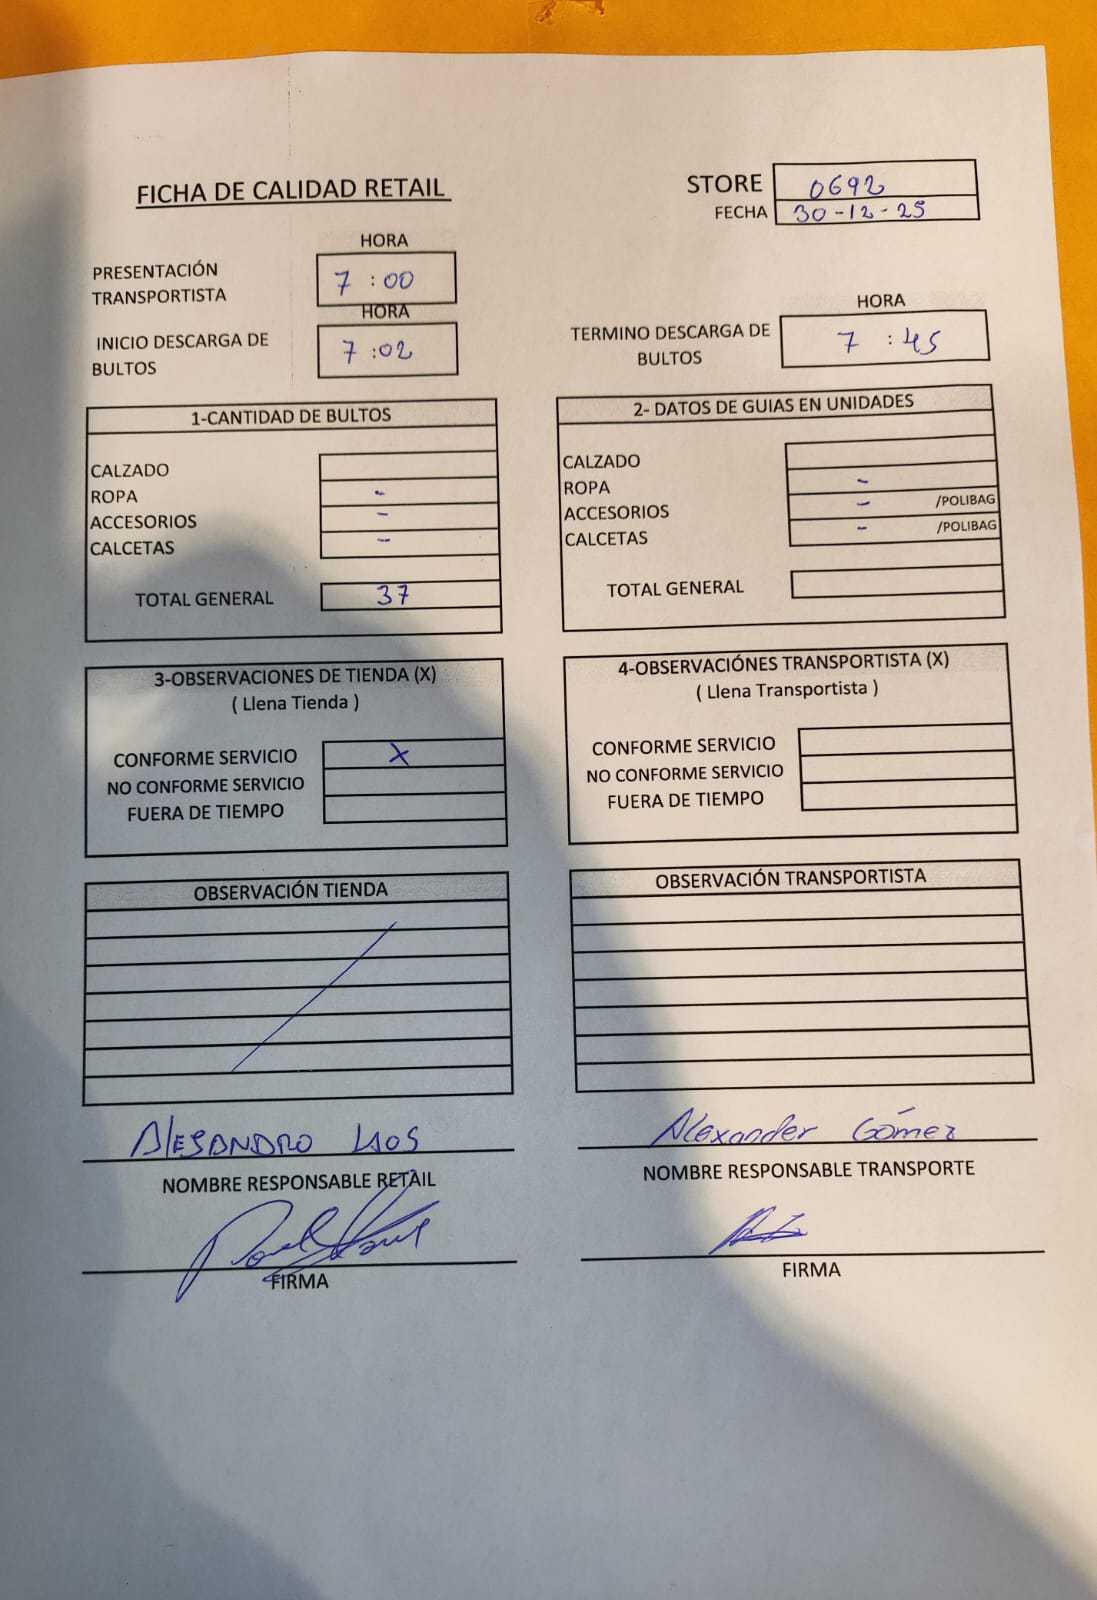 FICHA DE CALIDAD RETAIL
STORE 0692
FECHA 30-12-25
HORA
PRESENTACIÓN TRANSPORTISTA 7:00
HORA
INICIO DESCARGA DE BULTOS 7:02
HORA
TERMINO DESCARGA DE BULTOS 7:45
1-CANTIDAD DE BULTOS
CALZADO
ROPA -
ACCESORIOS -
CALCETAS -
TOTAL GENERAL 37
2- DATOS DE GUIAS EN UNIDADES
CALZADO
ROPA -
ACCESORIOS - /POLIBAG
CALCETAS - /POLIBAG
TOTAL GENERAL
3-OBSERVACIONES DE TIENDA (X)
( Llena Tienda )
CONFORME SERVICIO X
NO CONFORME SERVICIO
FUERA DE TIEMPO
4-OBSERVACIÓNES TRANSPORTISTA (X)
( Llena Transportista )
CONFORME SERVICIO
NO CONFORME SERVICIO
FUERA DE TIEMPO
OBSERVACIÓN TIENDA
OBSERVACIÓN TRANSPORTISTA
Alexander Gómez
NOMBRE RESPONSABLE RETAIL
NOMBRE RESPONSABLE TRANSPORTE
FIRMA
FIRMA